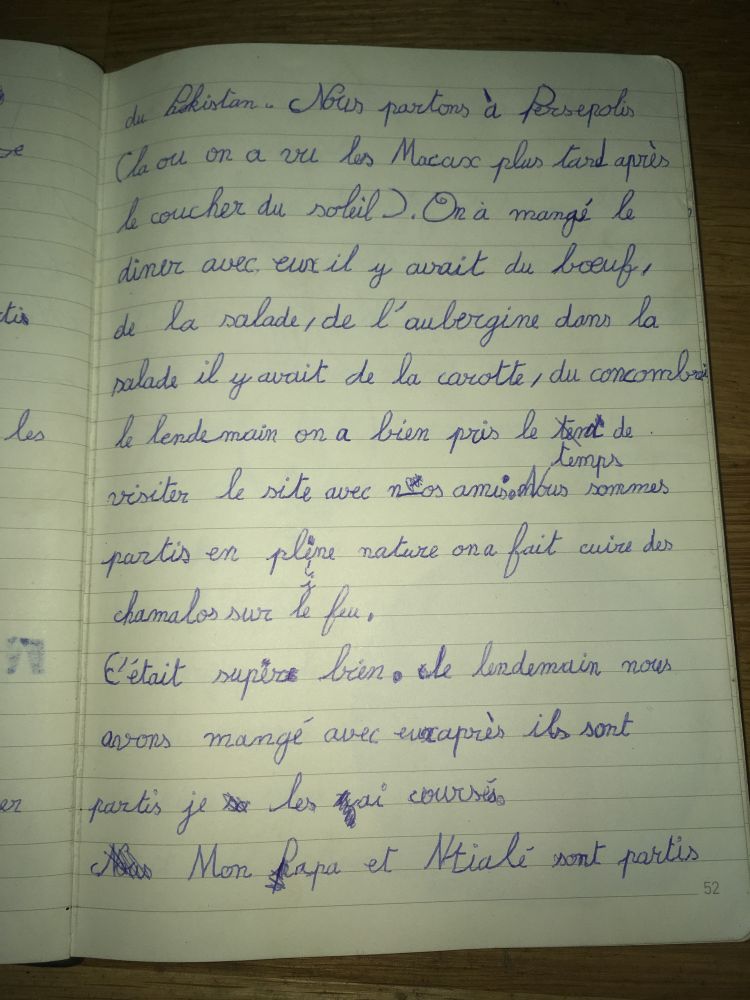 du Pakistan. Nous partons à Persepolis
(la ou on a vu les Macax plus tard après
le coucher du soleil). On à mangé le
diner avec eux il y avait du bœuf,
de la salade, de l'aubergine dans la
salade il y avait de la carotte, du concombre
le lendemain on a bien pris le de
temps
visiter le site avec nos amis. Nous sommes
partis en pleine nature on a fait cuire des
chamalos sur le feu.
C'était super bien. le lendemain nous
avons mangé avec eux après ils sont
partis je les ai coursés.
Mon Papa et Ntialé sont partis
52
se
tis
les
er